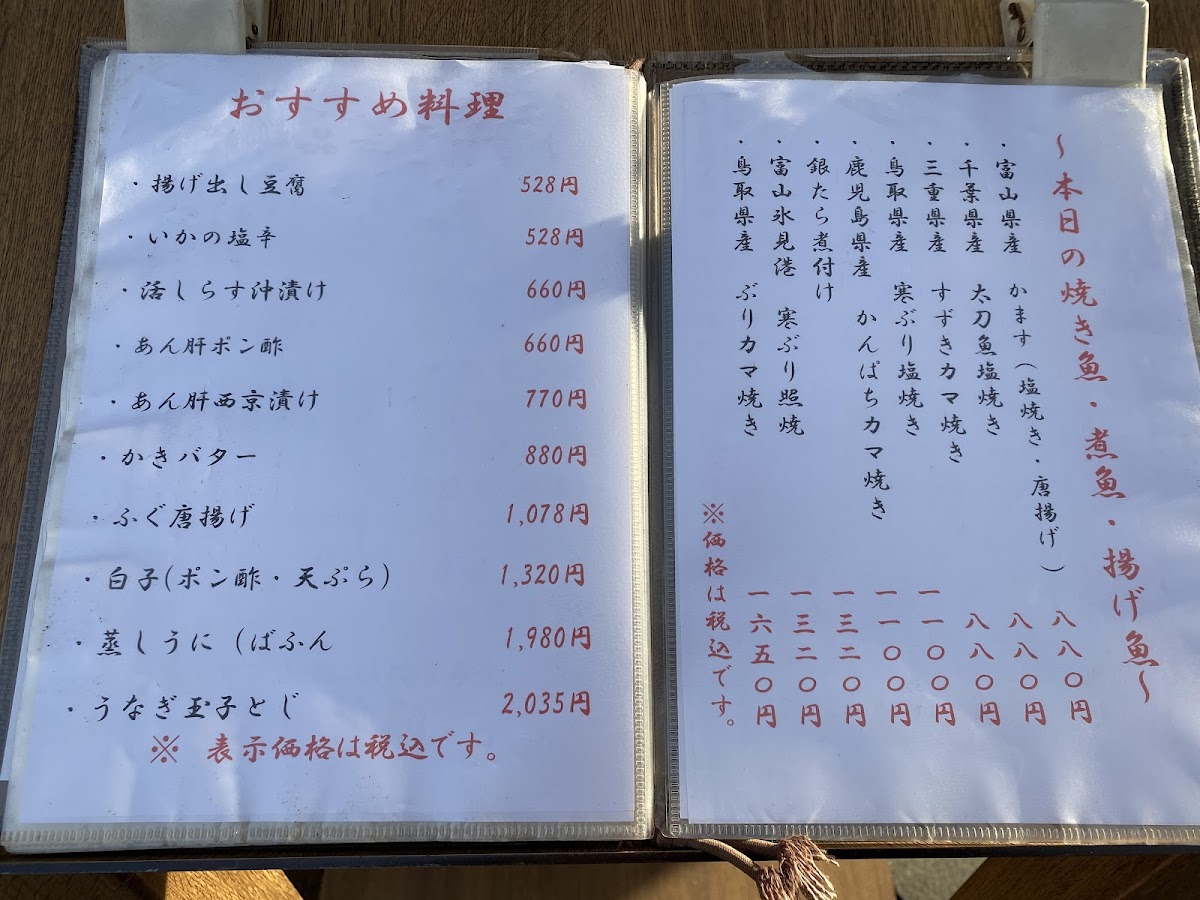 おすすめ料理
・揚げ出し豆腐 528円
・いかの塩辛 528円
・活しらす沖漬け 660円
・あん肝ポン酢 660円
・あん肝西京漬け 770円
・かきバター 880円
・ふぐ唐揚げ 1,078円
・白子(ポン酢・天ぷら) 1,320円
・蒸しうに（ばふん 1,980円
・うなぎ玉子とじ 2,035円
※ 表示価格は税込です。
～本日の焼き魚・煮魚・揚げ魚～
・富山県産 かます（塩焼き・唐揚げ） 八八〇円
・千葉県産 太刀魚塩焼き 八八〇円
・三重県産 すずきカマ焼き 八八〇円
・鳥取県産 寒ぶり塩焼き 一一〇〇円
・鹿児島県産 かんぱちカマ焼き 一一〇〇円
・銀たら煮付け 一三二〇円
・富山氷見港 寒ぶり照焼 一三二〇円
・鳥取県産 ぶりカマ焼き 一六五〇円
※価格は税込です。